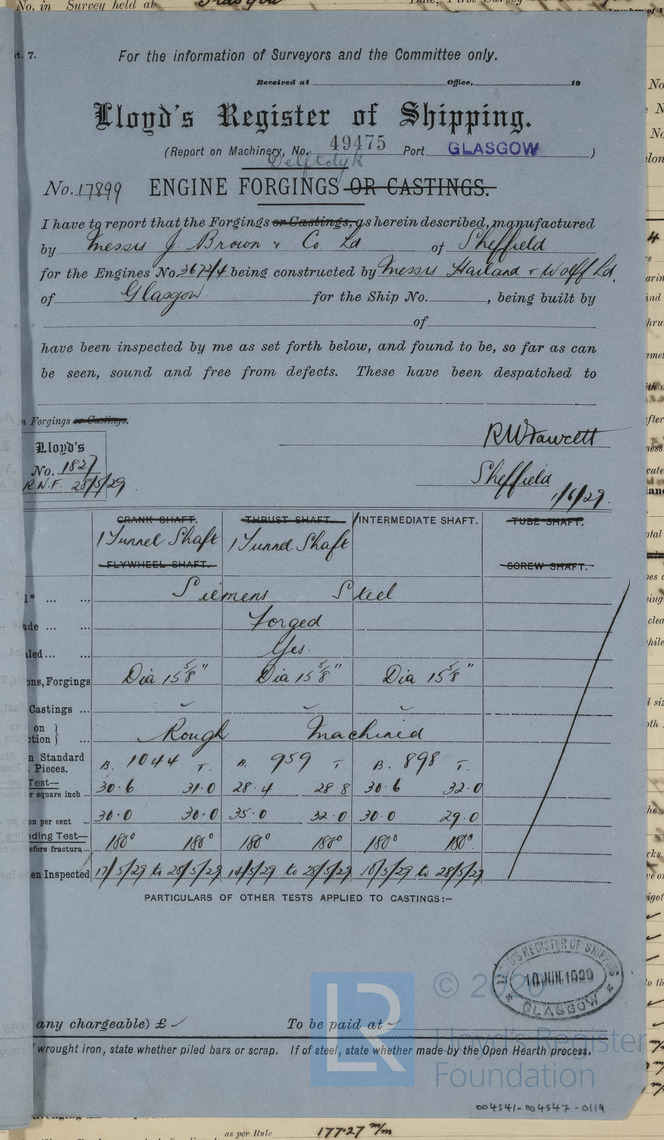 No. in Survey held at
t. 7.
For the information of Surveyors and the Committee only.
Received at Office, 19
Lloyd's Register of Shipping.
(Report on Machinery, No. 49475 Port GLASGOW )
Delftdyk
No. 17899 ENGINE FORGINGS OR CASTINGS.
I have to report that the Forgings or Castings, as herein described, manufactured
by Messrs J. Brown & Co Ld of Sheffield
for the Engines No. being constructed by Messrs Harland & Wolff Ld.
of Glasgow for the Ship No. , being built by
of
have been inspected by me as set forth below, and found to be, so far as can
be seen, sound and free from defects. These have been despatched to
n Forgings or Castings.
Lloyd's
No. 1827
R.W.F. 28/5/29
RW Fawcett
Sheffield 1/6/29.
CRANK SHAFT. THRUST SHAFT. INTERMEDIATE SHAFT. TUBE SHAFT.
1 Tunnel Shaft 1 Tunnel Shaft
FLYWHEEL SHAFT. SCREW SHAFT.
Siemens Steel
ade Forged
led Yes.
ons, Forgings Dia 15 5/8" Dia 15 5/8" Dia 15 5/8"
Castings
on
ction } Rough Machined
n Standard
Pieces. B. 1044 T. B. 959 T. B. 898 T.
Test—
r square inch 30.6 31.0 28.4 28.8 30.6 32.0
on per cent 30.0 30.0 35.0 32.0 30.0 29.0
nding Test—
efore fracture 180° 180° 180° 180° 180° 180°
en Inspected 17/5/29 to 28/5/29 14/5/29 to 28/5/29 18/5/29 to 28/5/29
PARTICULARS OF OTHER TESTS APPLIED TO CASTINGS:—
LLOYD'S REGISTER OF SHIPPING
10 JUN. 1929
GLASGOW
© 2020
LR
Lloyd's Register
Foundation
any chargeable) £ To be paid at
wrought iron, state whether piled bars or scrap. If of steel, state whether made by the Open Hearth process.
004541-004547-0119
as per Rule 177.27 m/m